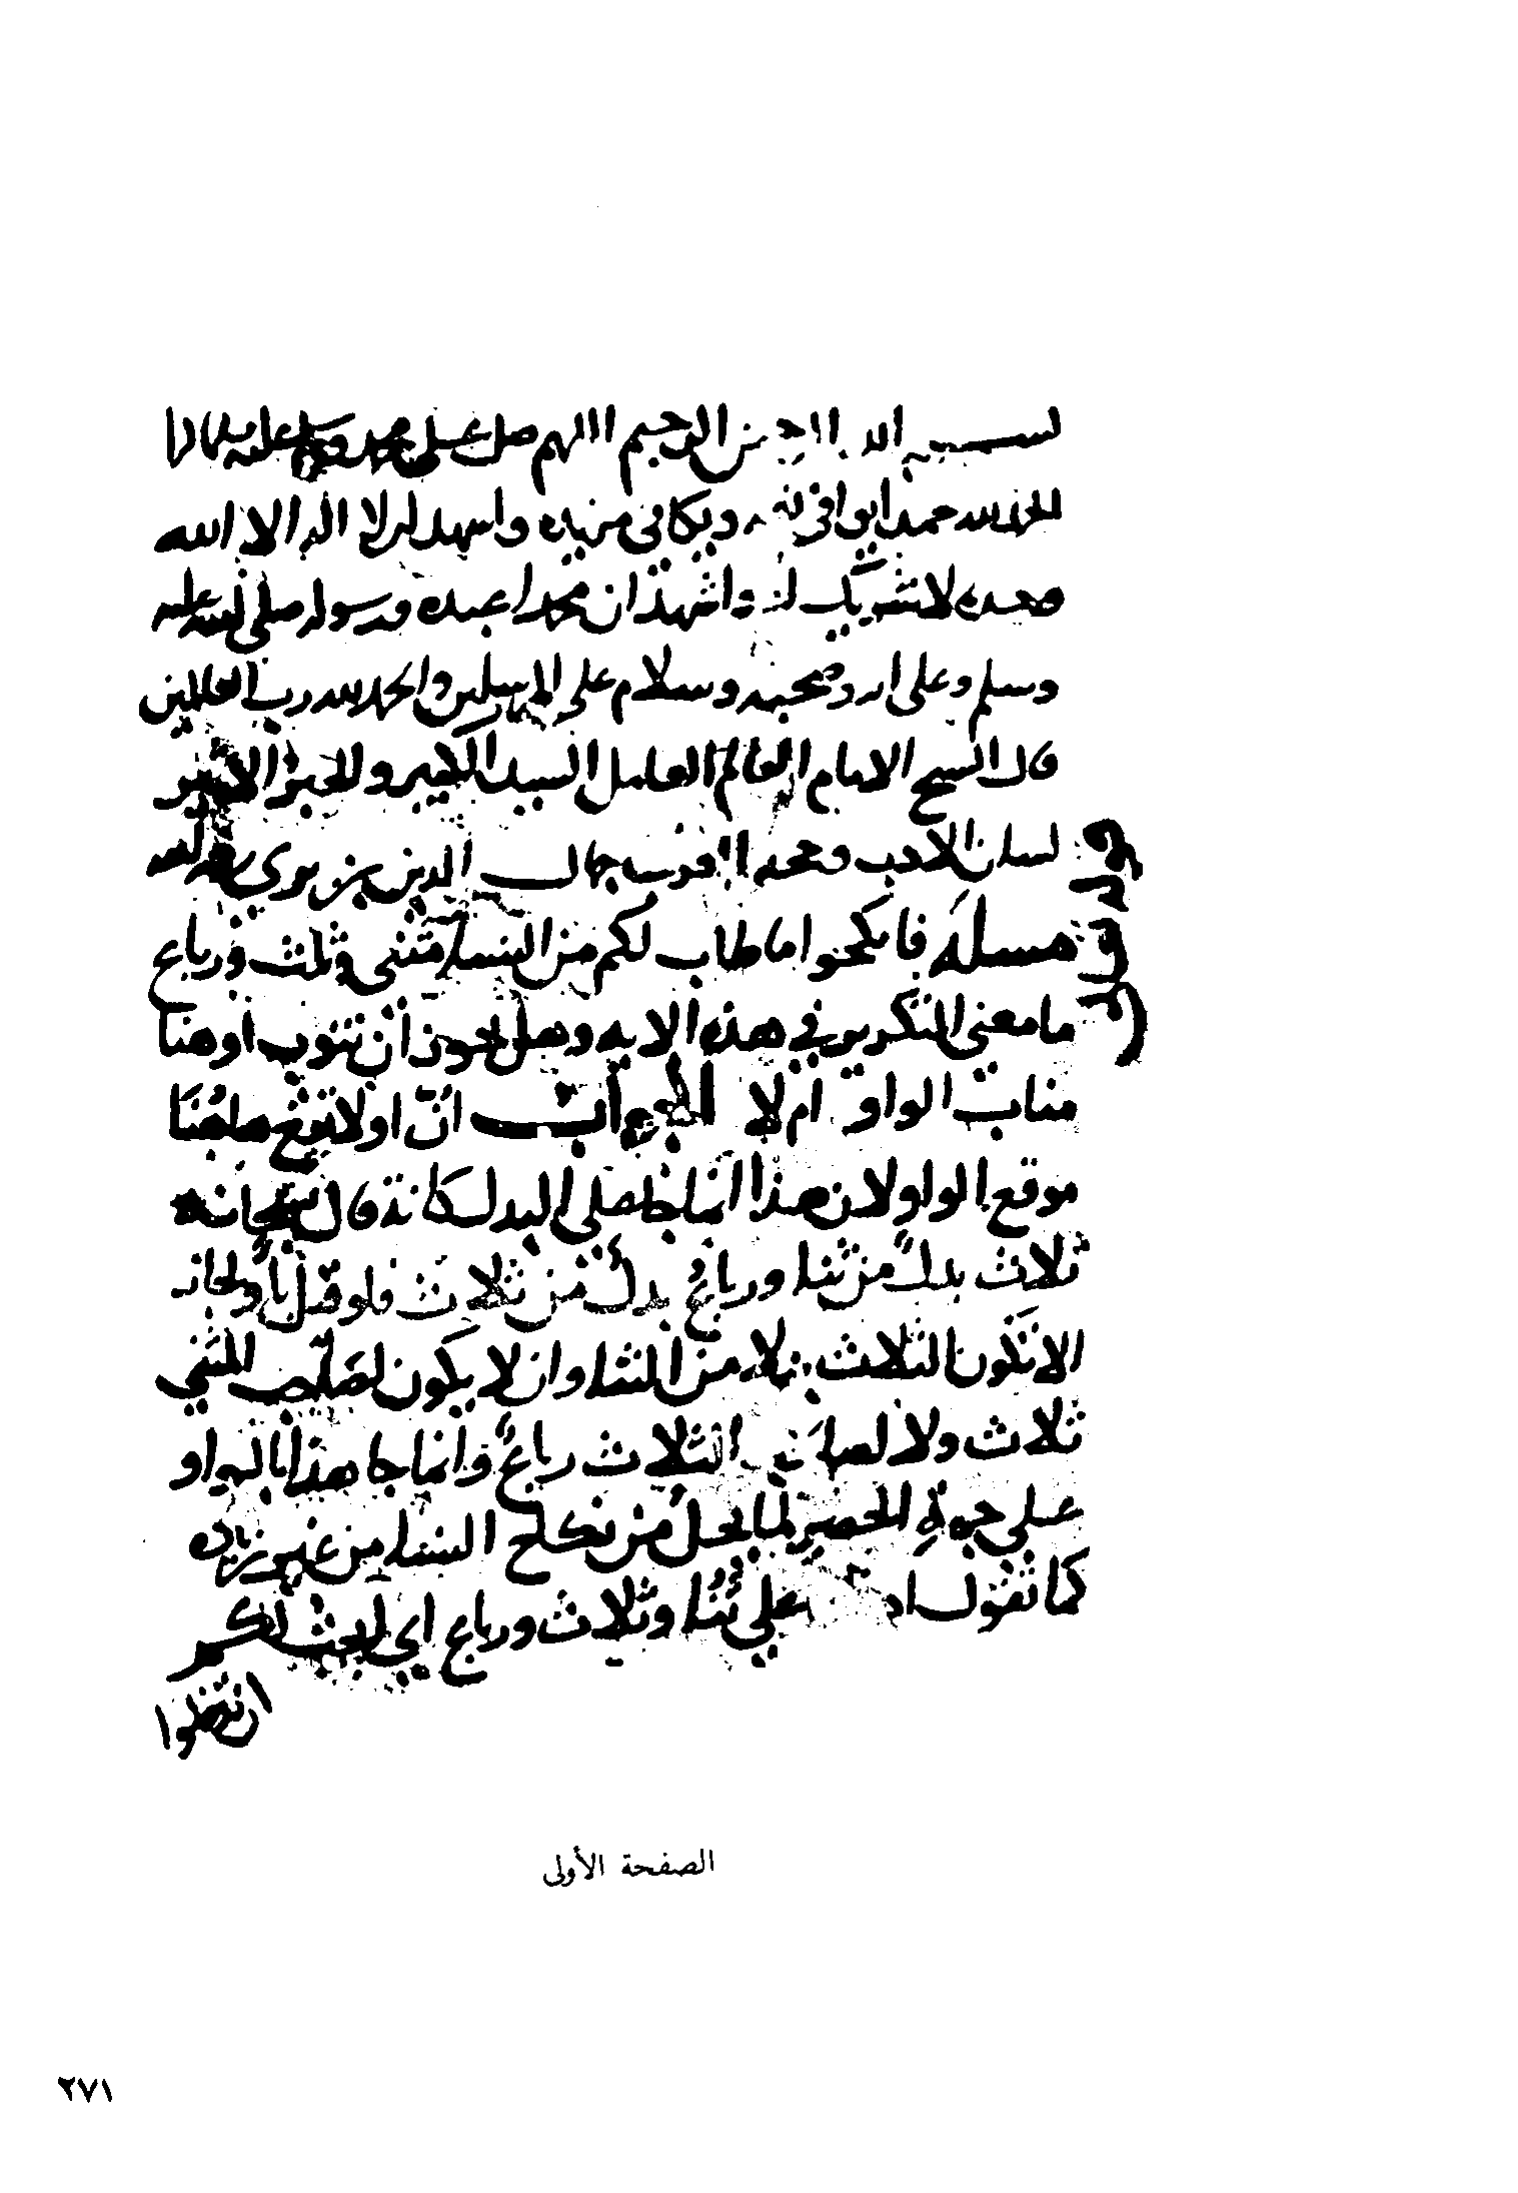 بسم الله الرحمن الرحيم اللهم صل على محمد
الحمد لله حمدا يوافي نعمه ويكافي مزيده واشهد ان لا اله الا الله
وحده لا شريك له واشهد ان محمدا عبده ورسوله صلى الله عليه
وسلم وعلى اله وصحبه وسلام على المرسلين والحمد لله رب العالمين
قال الشيخ الامام العالم العامل السيد الكبير والحبر الاثير
لسان الادب وحجه العرب جمال الدين بري رحمه الله
مسلة فانكحوا ما طاب لكم من النسا مثنى وثلث ورباع
ما معنى التكرير في هذه الايه وهل يجوز أن تنوب أو هنا
مناب الواو ام لا الجواب انّ او لا تقع هاهُنَا
موقع الواو لان هذا انما جا على البدل كانه قال سبحانه
ثلاث بدلً من ثنا ورباعُ بدلٌ من ثلاث فلو قيل بأو لجاز
الا تَكون الثلاث بدلا من المثنا وان لا يكون لصاحب المثنى
ثلاث ولا لصاحب الثلاث رباعٌ وانما جا هذا بالواو
على جهةِ الحصر لما يحلُ من نكاح النسا من غير زياده
كما تقول ادخلوا علي ثُنا وثلاث ورباع اي ابحت لكم
ان تدخلوا
الصفحة الأولى
٢٧١